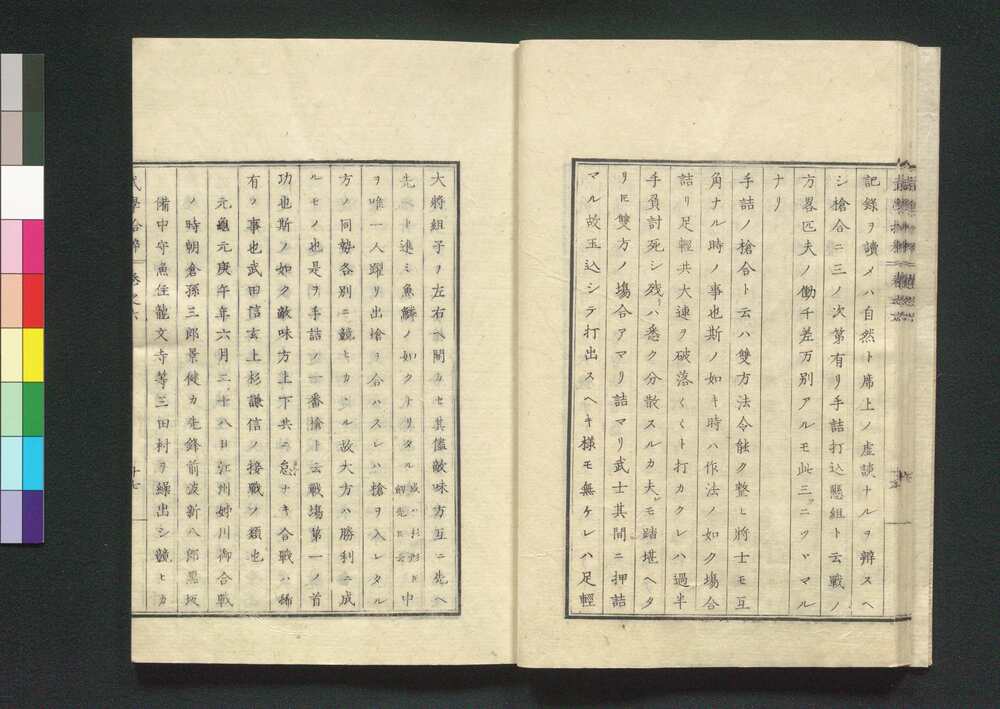 記録ヲ讀メハ自然ト席上ノ虚談ナルヲ辨スヘ
シ槍合ニ三ノ次第有リ手詰打込懸組ト云戰ノ
方畧匹夫ノ働千差万別アルモ此三ツニツヽマル
ナリ
手詰ノ槍合ト云ハ雙方法令能ク整ヒ將士モ互
角ナル時ノ事也斯ノ如キ時ハ作法ノ如ク塲合
詰リ足輕共大連ヲ破落〱ト打カクレハ過半
手負討死シ残リハ悉ク分散スルカ夫レモ踏堪ヘタ
リ𪜈雙方ノ塲合アマリ詰マリ武士其間ニ押詰
マル故玉込シテ打出スヘキ様モ無ケレハ足輕
大將組子ヲ左右ヘ開カセ其儘敵味方互ニ先ヘ
先ヘト進ミ魚鱗ノ如クナリタル中
ヲ唯一人躍リ出槍ヲ合ハスレハ槍ヲ入レタル
方ノ同勢各別ニ競ヒカヽル故大方ハ勝利ニ成
ルモノ也是ヲ手詰ノ一番槍ト云戰塲第一ノ首
功也斯ノ如ク敵味方上下共ニ怠リナキ合戰ハ稀
有ノ事也武田信玄上杉謙信ノ接戰ノ類也
元龜元庚午年六月二十八日江州姉川御合戰
ノ時朝倉孫三郎景健カ先鋒前波新八郎黒坂
備中守魚住龍文寺等三田村ヲ繰出シ競ヒカ